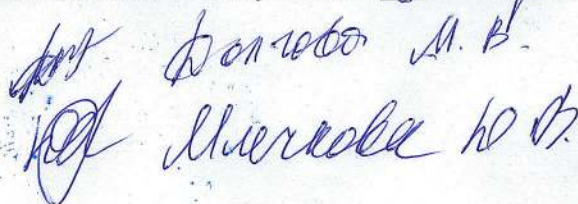 Долгова М. В.
Млечкова Ю В.